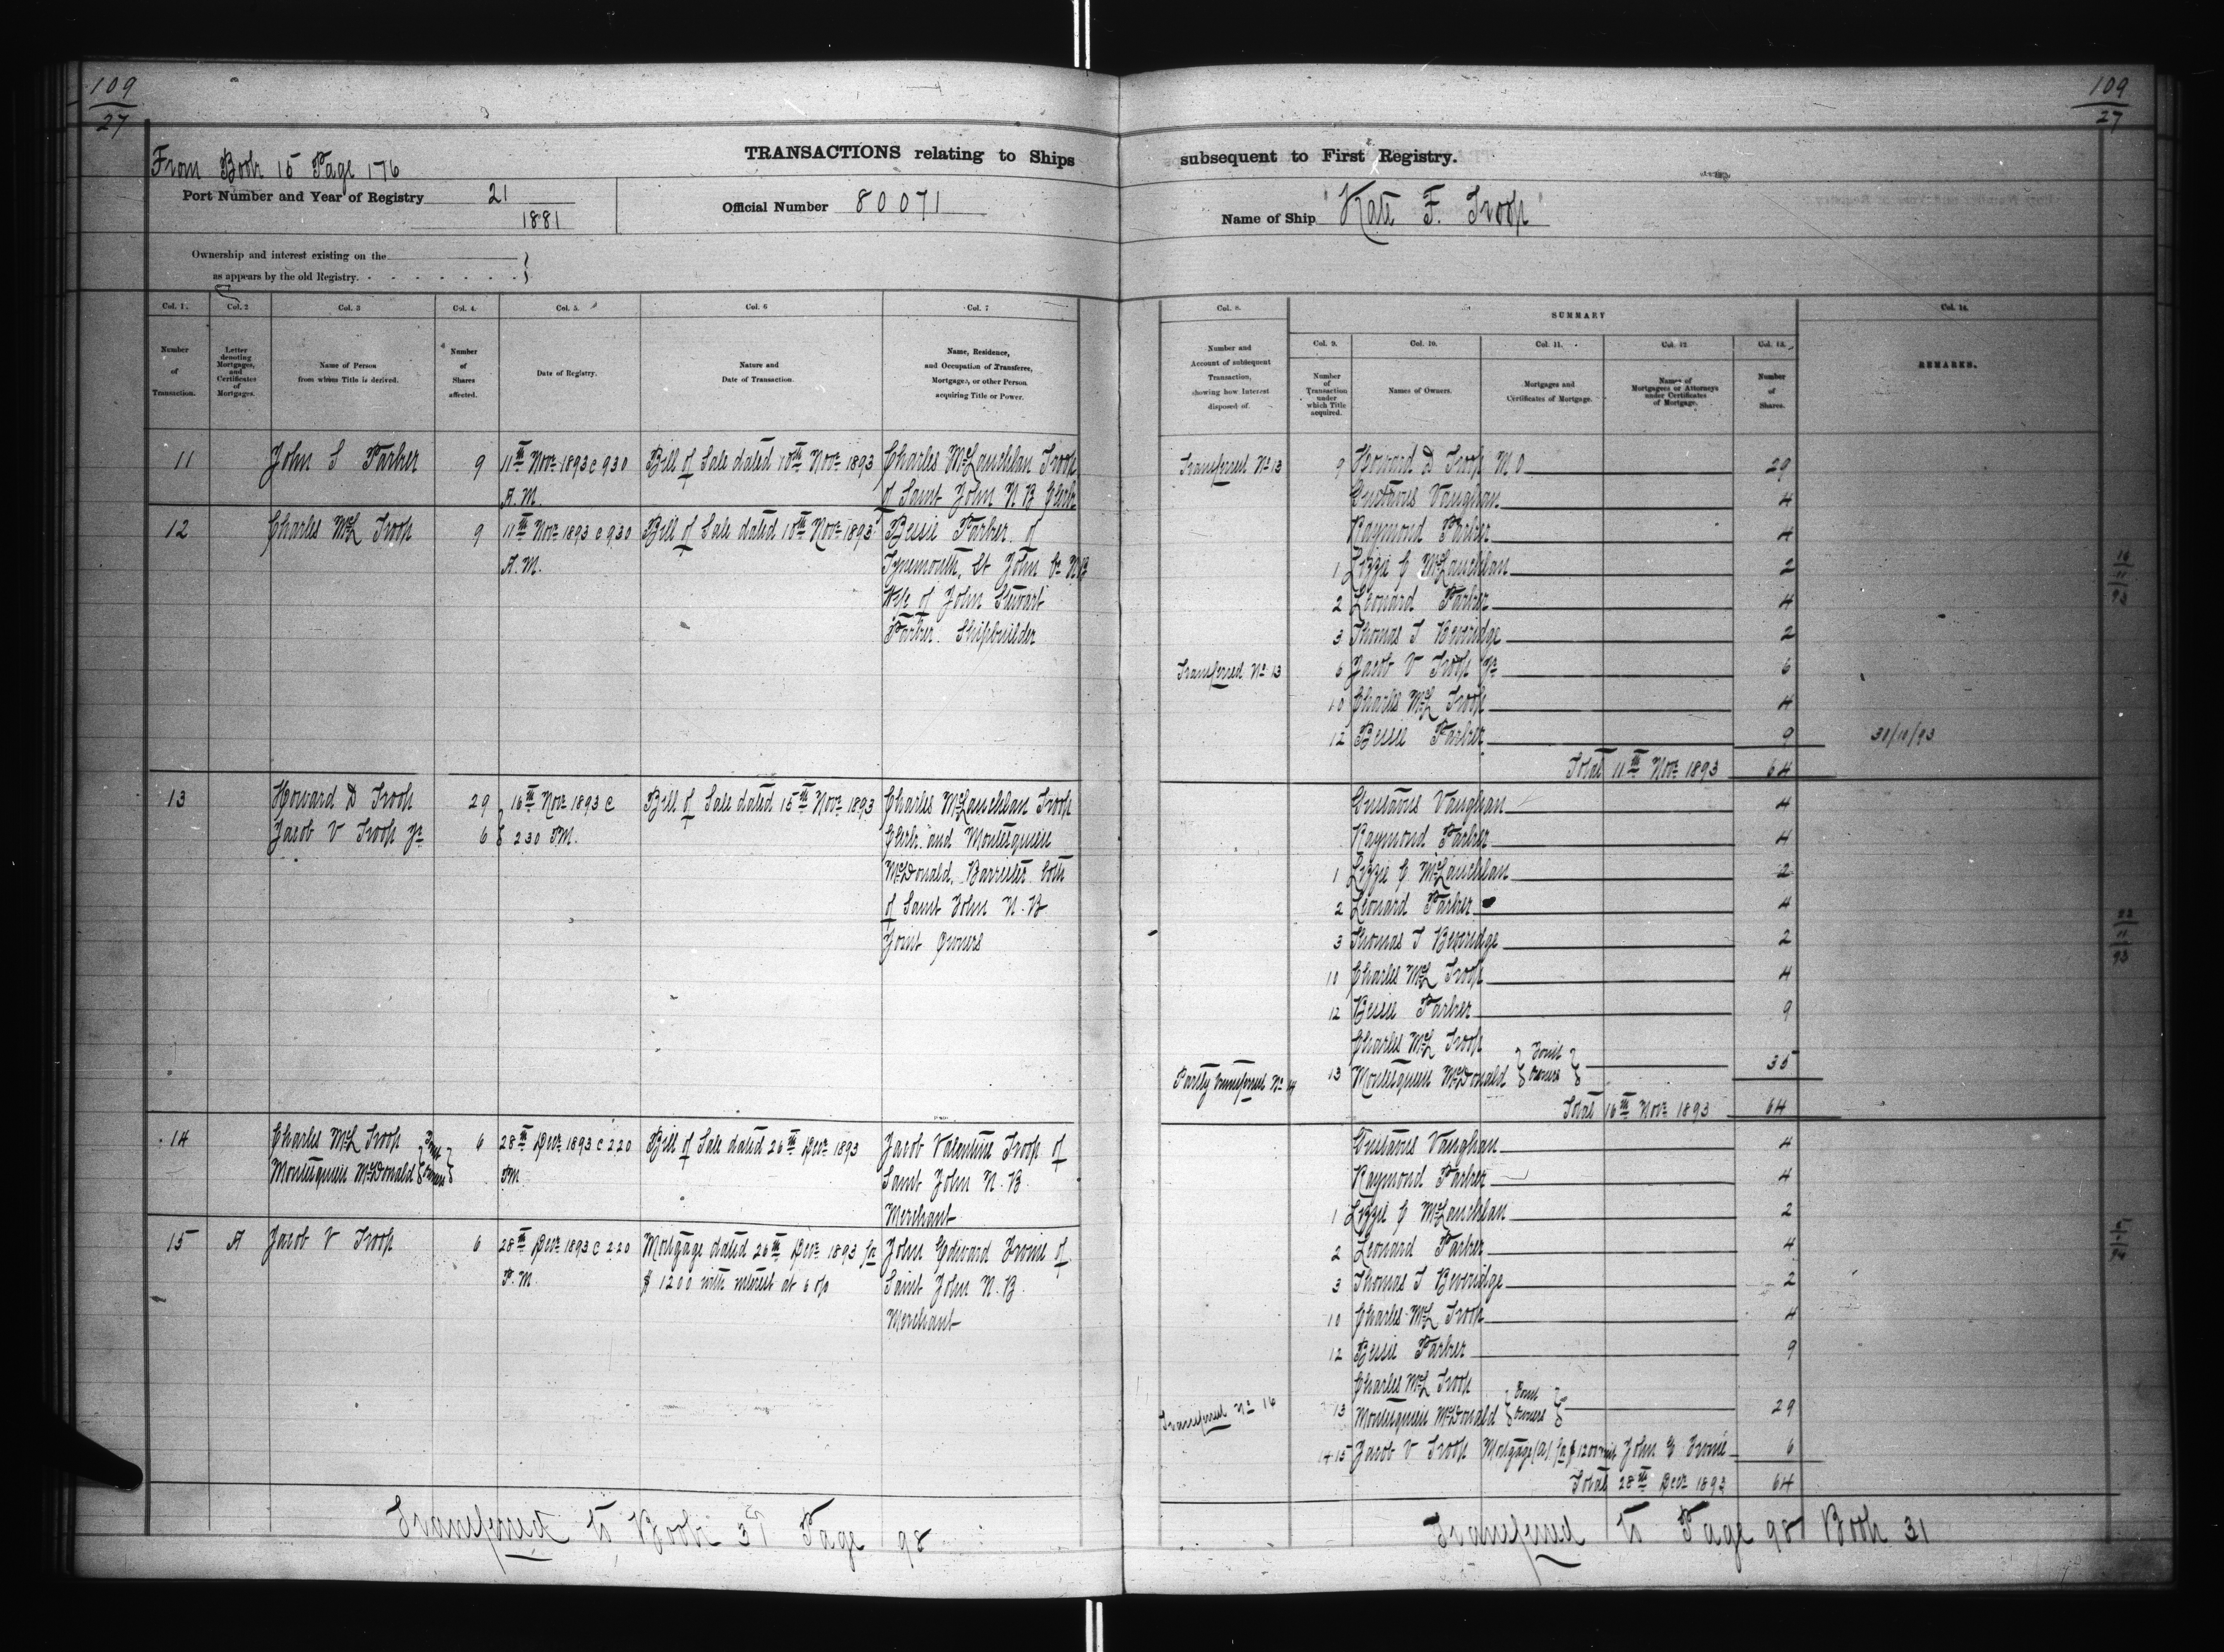 109
27
From Book 15 Page 176
TRANSACTIONS relating to Ships
Port Number and Year of Registry 21
1881
Official Number 80071
Ownership and interest existing on the
as appears by the old Registry.
Col. 1. Col. 2 Col. 3 Col. 4. Col. 5. Col. 6 Col. 7
Number of Transaction.
Letter denoting Mortgages, and Certificates of Mortgages.
Name of Person from whom Title is derived.
Number of Shares affected.
Date of Registry.
Nature and Date of Transaction.
Name, Residence, and Occupation of Transferee, Mortgagee, or other Person acquiring Title or Power.
11 John S Parker 9 11th Novr 1893 @ 930 Bill of Sale dated 10th Novr 1893 Charles McLauchlan Troop
A.M. of Saint John N B Clerk
12 Charles McL Troop 9 11th Novr 1893 @ 930 Bill of Sale dated 10th Novr 1893 Bessie Parker of
A.M. Tynemouth, St John Co NB
Wife of John Stewart
Parker. Shipbuilder
13 Howard D Troop 29 16th Novr 1893 @ Bill of Sale dated 15th Novr 1893 Charles McLauchlan Troop
Jacob V Troop Jr 6 230 P.M. Clerk and Montesquieu
McDonald, Barrister both
of Saint John N.B
Joint Owners
14 Charles McL Troop Joint 6 28th Decr 1893 @ 220 Bill of Sale dated 26th Decr 1893 Jacob Valentine Troop of
Montesquieu McDonald Owners PM Saint John N.B.
Merchant
15 A Jacob V Troop 6 28th Decr 1893 @ 220 Mortgage dated 26th Decr 1893 for John Edward Irvine of
P.M. $1200 with interest at 6 o/o Saint John N.B.
Merchant
Transferred to Book 31 Page 98
109
27
subsequent to First Registry.
Name of Ship "Kate F. Troop"
Col. 8. SUMMARY Col. 14.
Col. 9. Col. 10. Col. 11. Col. 12 Col. 13.
Number and Account of subsequent Transaction, showing how Interest disposed of.
Number of Transaction under which Title acquired.
Names of Owners.
Mortgages and Certificates of Mortgage.
Names of Mortgagees or Attorneys under Certificates of Mortgage.
Number of Shares.
REMARKS.
Transferred No 13 9 Howard D Troop M O 29
Gustavus Vaughan 4
Raymond Parker 4
1 Lizzie G McLauchlan 2
2 Leonard Parker 4
3 Thomas T Beveridge 2
Transferred No 13 6 Jacob V Troop Jr 6
10 Charles McL Troop 4
12 Bessie Parker 9
Total 11th Novr 1893 64
Gustavus Vaughan 4
Raymond Parker 4
1 Lizzie G McLauchlan 2
2 Leonard Parker 4
3 Thomas T Beveridge 2
10 Charles McL Troop 4
12 Bessie Parker 9
Charles McL Troop Joint
Partly transferred No 14 13 Montesquieu McDonald Owners 35
Total 16th Novr 1893 64
Gustavus Vaughan 4
Raymond Parker 4
1 Lizzie G McLauchlan 2
2 Leonard Parker 4
3 Thomas T Beveridge 2
10 Charles McL Troop 4
12 Bessie Parker 9
Charles McL Troop Joint
Transferred No 16 13 Montesquieu McDonald Owners 29
14 15 Jacob V Troop Mortgage (A) for $1200 with John E Irvine 6
Total 28th Decr 1893 64
Transferred to Page 98 Book 31